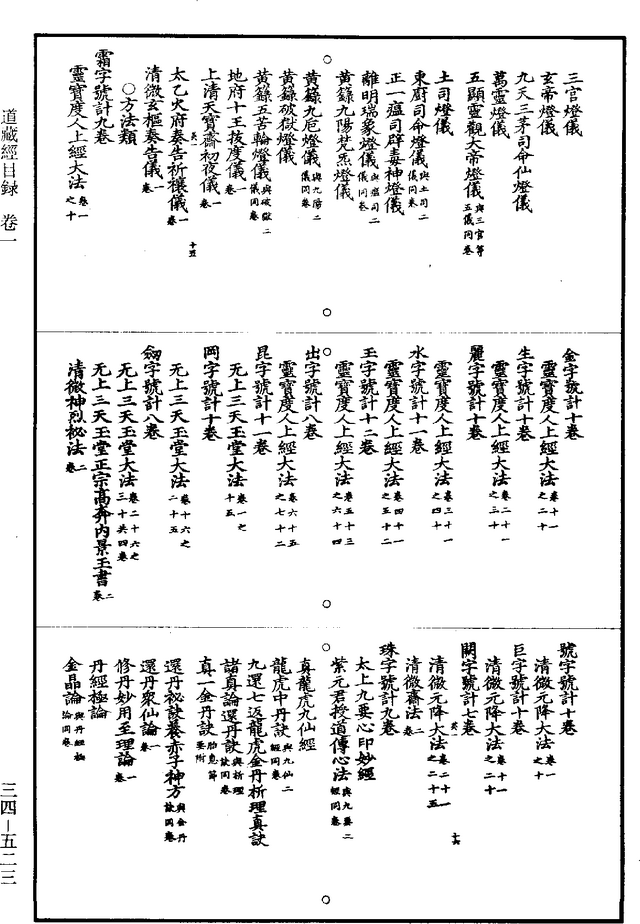 三官燈儀
玄帝燈儀
九天三茅司命仙燈儀
萬靈燈儀
五顯靈觀大帝燈儀 與三官等五儀同卷
土司燈儀
東廚司命燈儀 與土司二儀同卷
正一瘟司辟毒神燈儀
離明瑞象燈儀 與瘟司二儀同卷
黃籙九陽梵炁燈儀
黃籙九巵燈儀 與九陽二儀同卷
黃籙破獄燈儀
黃籙五苦輪燈儀 與破獄二儀同卷
地府十王拔度儀 一卷
上清天寶齋初夜儀 一卷
太乙火府奏告祈禳儀 一卷
清微玄樞奏告儀 一卷
○方法類
霜字號計九卷
靈寶度人上經大法 卷一之十
金字號計十卷
靈寶度人上經大法 卷十一之二十
生字號計十卷
靈寶度人上經大法 卷二十一之三十
麗字號計十卷
靈寶度人上經大法 卷三十一之四十
水字號計十一卷
靈寶度人上經大法 卷四十一之五十二
玉字號計十二卷
靈寶度人上經大法 卷五十三之六十四
出字號計八卷
靈寶度人上經大法 卷六十五之七十二
崑字號計十一卷
无上三天玉堂大法 卷一之十五
岡字號計十卷
无上三天玉堂大法 卷十六之二十五
劒字號計八卷
无上三天玉堂大法 卷二十六之三十共四卷
无上三天玉堂正宗高奔內景玉書 二卷
清微神烈祕法 二卷
號字號計十卷
清微元降大法 卷一之十
巨字號計十卷
清微元降大法 卷十一之二十
闕字號計七卷
清微元降大法 卷二十一之二十五
清微齋法 二卷
珠字號計九卷
太上九要心印妙經
紫元君授道傳心法 與九要二經同卷
真龍虎九仙經
龍虎中丹訣 與九仙二經同卷
九還七返龍虎金丹析理真訣
諸真論還丹訣 與析理訣同卷
真一金丹訣 胎息節要附
還丹祕訣養赤子神方 與金丹訣同卷
還丹眾仙論 一卷
修丹妙用至理論 一卷
丹經極論
金晶論 與丹經極論同卷
道藏經目録　卷一
三四—五二三